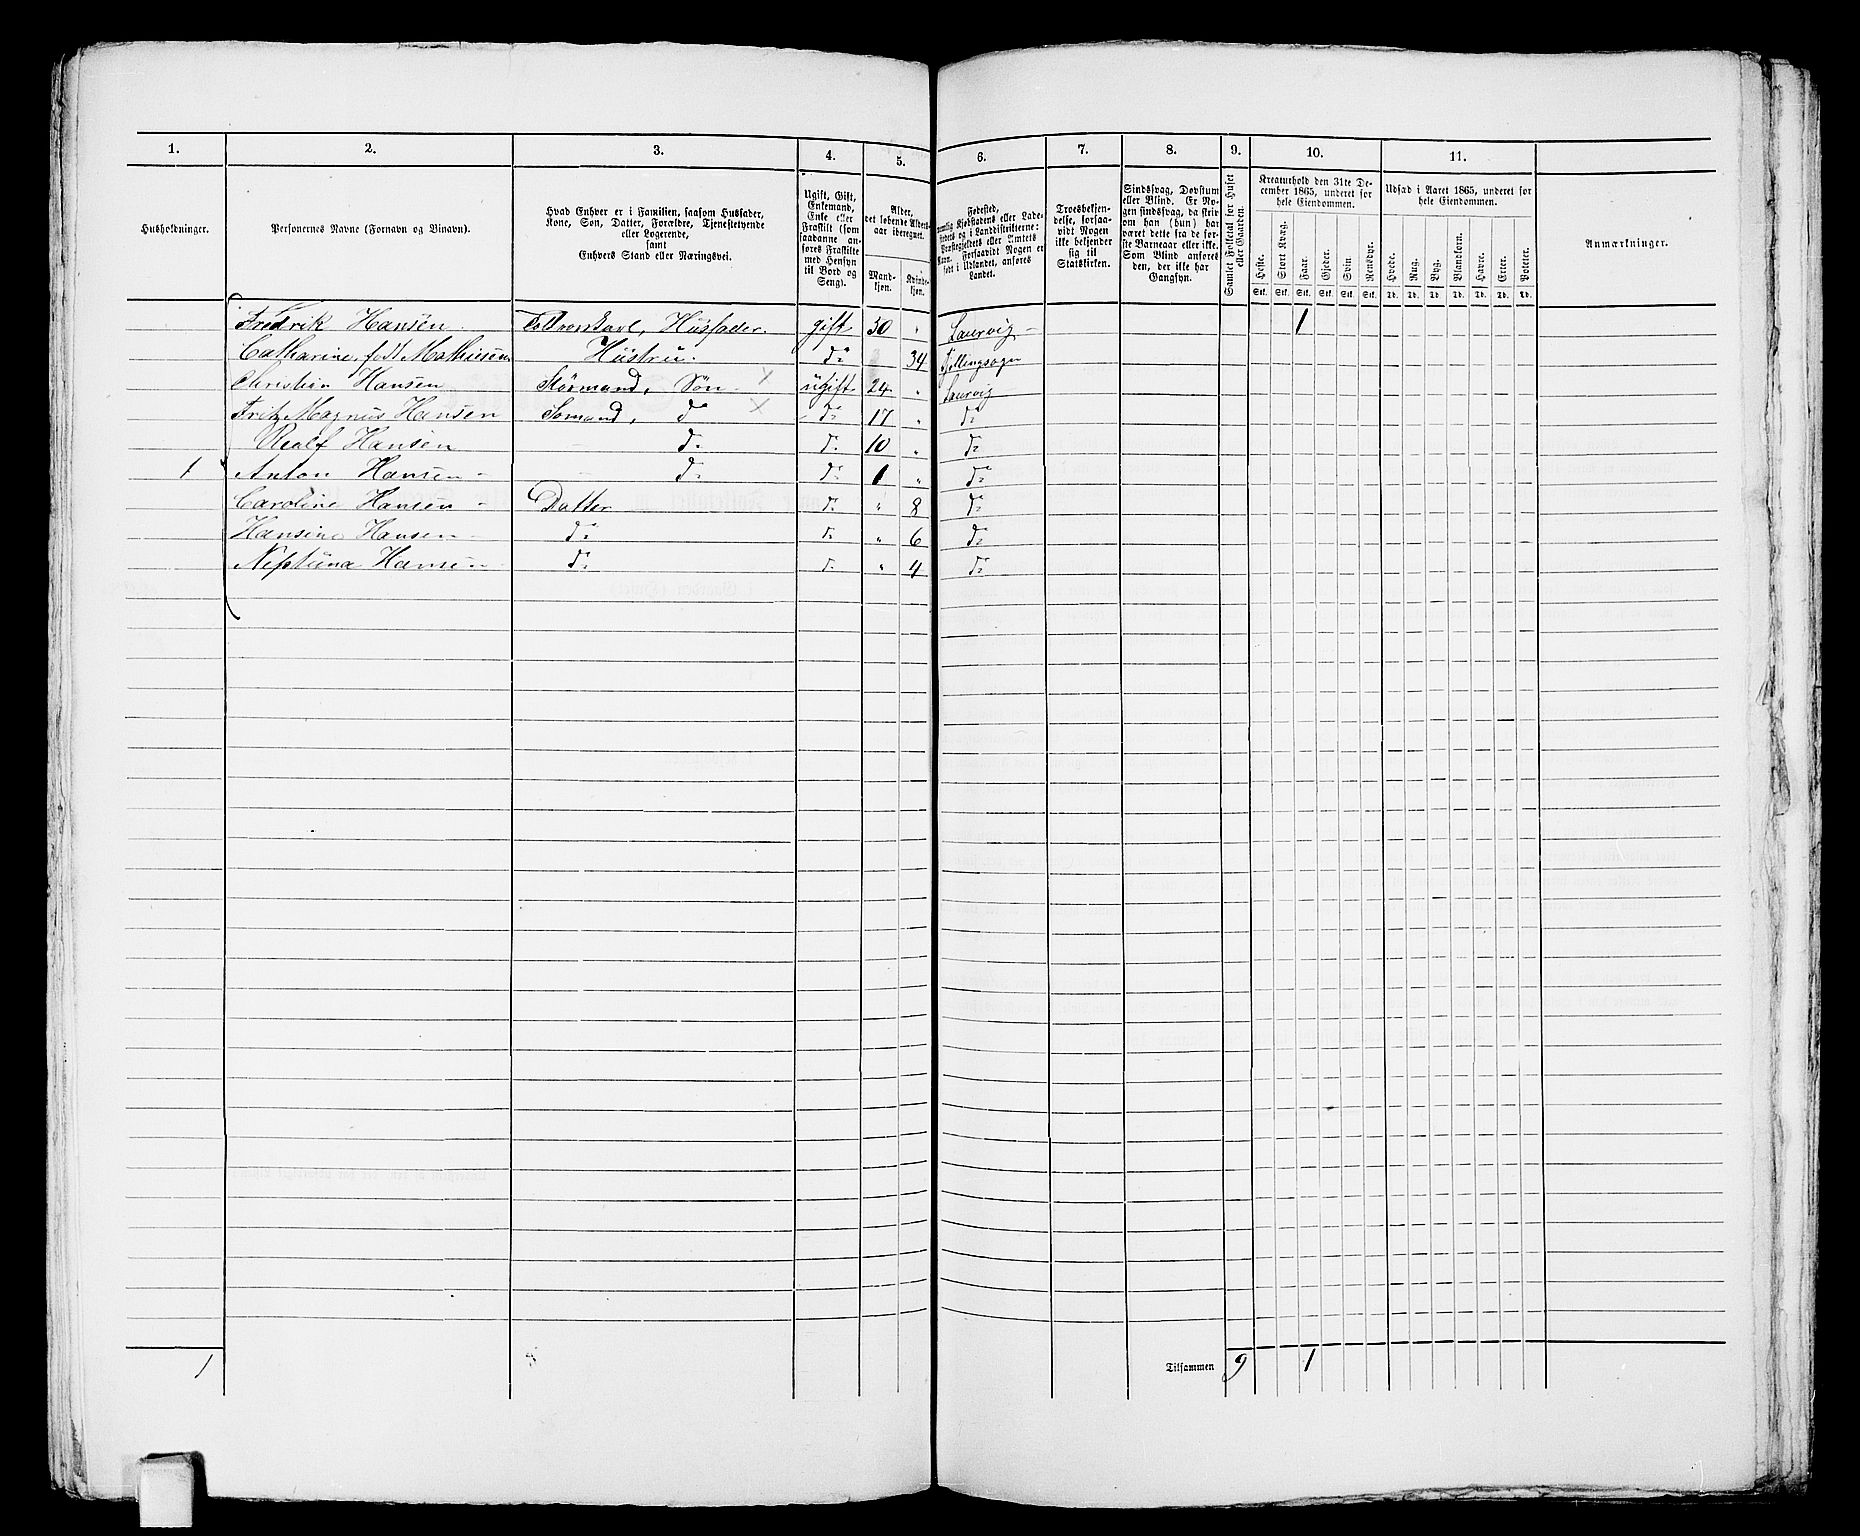 1. 2. 3. 4. 5. 6. 7. 8. 9. 10. 11.
Husholdninger.
Personernes Navne (Fornavn og Binavn).
Hvad Enhver er i Familien, saasom Husfader,
Kone, Søn, Datter, Forældre, Tjenestetyende
eller Logerende,
samt
Enhvers Stand eller Næringsvei.
Ugift, Gift,
Enkemand,
Enke eller
Fraskilt (som
saadanne an-
føres Fraskilte
med Hensyn
til Bord og
Seng).
Alder,
det løbende Alders-
aar iberegnet.
Mand-
kjøn.
Kvinde-
kjøn.
Fødested,
nemlig Kjøbstadens eller Lade-
stedets og i Landdistrikterne:
Præstegjeldets eller Amtets
Navn. Forsaavidt Nogen er
født i Udlandet, anføres
Landet.
Troesbekjen-
delse, forsaa-
vidt Nogen
ikke bekjender
sig til
Statskirken.
Sindssvag, Døvstum
eller Blind. Er No-
gen sindssvag, da skriv
om han (hun) har
været dette fra de før-
ste Barneaar eller ikke.
Som Blind anføres
den, der ikke har
Gangsyn.
Samlet Folketal for Huset
eller Gaarden.
Kreaturhold den 31te De-
cember 1865, underet for
hele Eiendommen.
Heste. Stort Kvæg. Faar. Gjeder. Svin. Rensdyr.
Stk. Stk. Stk. Stk. Stk. Stk.
Udsæd i Aaret 1865, underet for
hele Eiendommen.
Hvede. Rug. Byg. Blandkorn. Havre. Erter. Poteter.
Td. Td. Td. Td. Td. Td. Td.
Anmærkninger.
Fredrik Hansen Husfader. gift 50 " Laurvig 1
Catharine, født Mathiesen Hustru. do 34 Tjøllingsogn
Christian Hansen Styrmand, Søn ugift 24 " Laurvig
Fritz Magnus Hansen Sømand, do do 17 " do
Realf Hansen do do 10 " do
1 Anton Hansen do do 1 " do
Caroline Hansen Datter do " 8 do
Hansine Hansen do do " 6 do
Neptuna Hansen do do " 4 do
1 Tilsammen 9 1